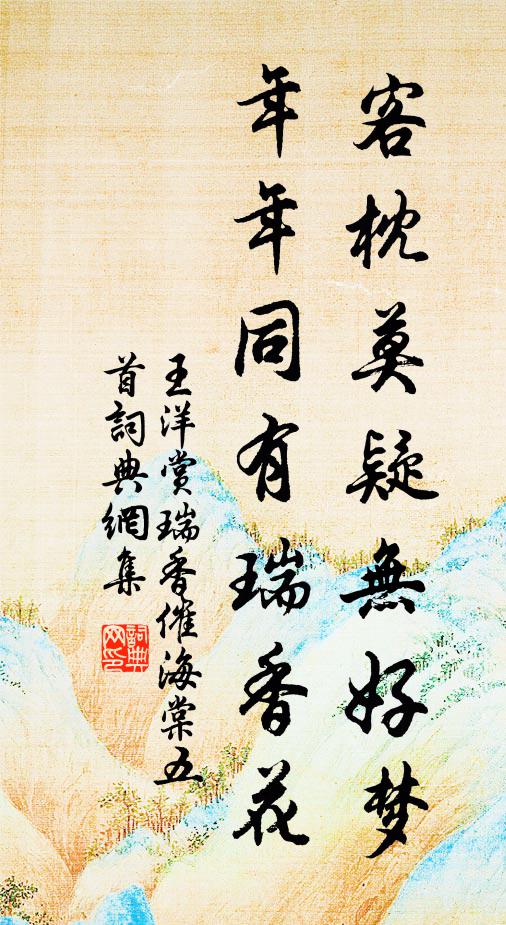 客枕莫疑無好梦
年年同有瑞香花
王洋賞瑞香催海棠五
首詞典網集
詞典
网印